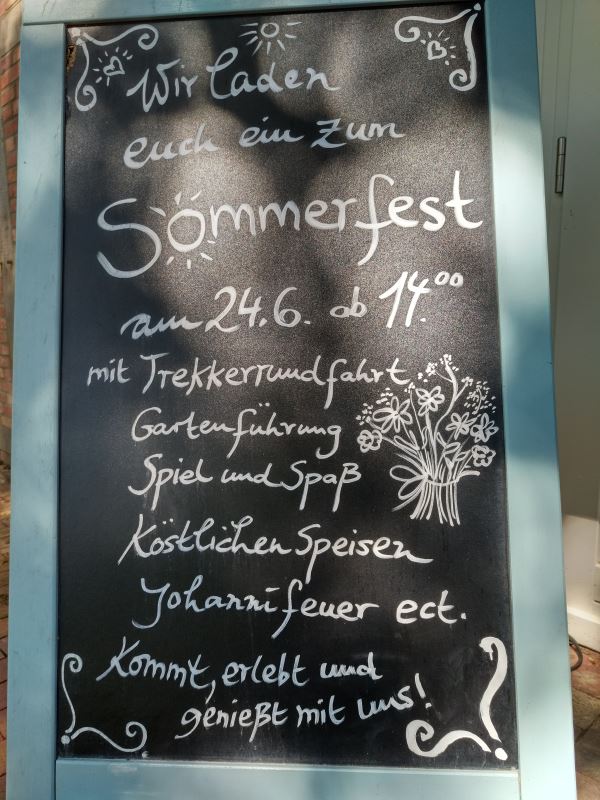 Wir laden
euch ein zum
Sommerfest
am 24.6. ab 14.00
mit Trekkerrundfahrt
Gartenführung
Spiel und Spaß
Köstlichen Speisen
Johannifeuer ect.
Kommt, erlebt und
genießt mit uns!